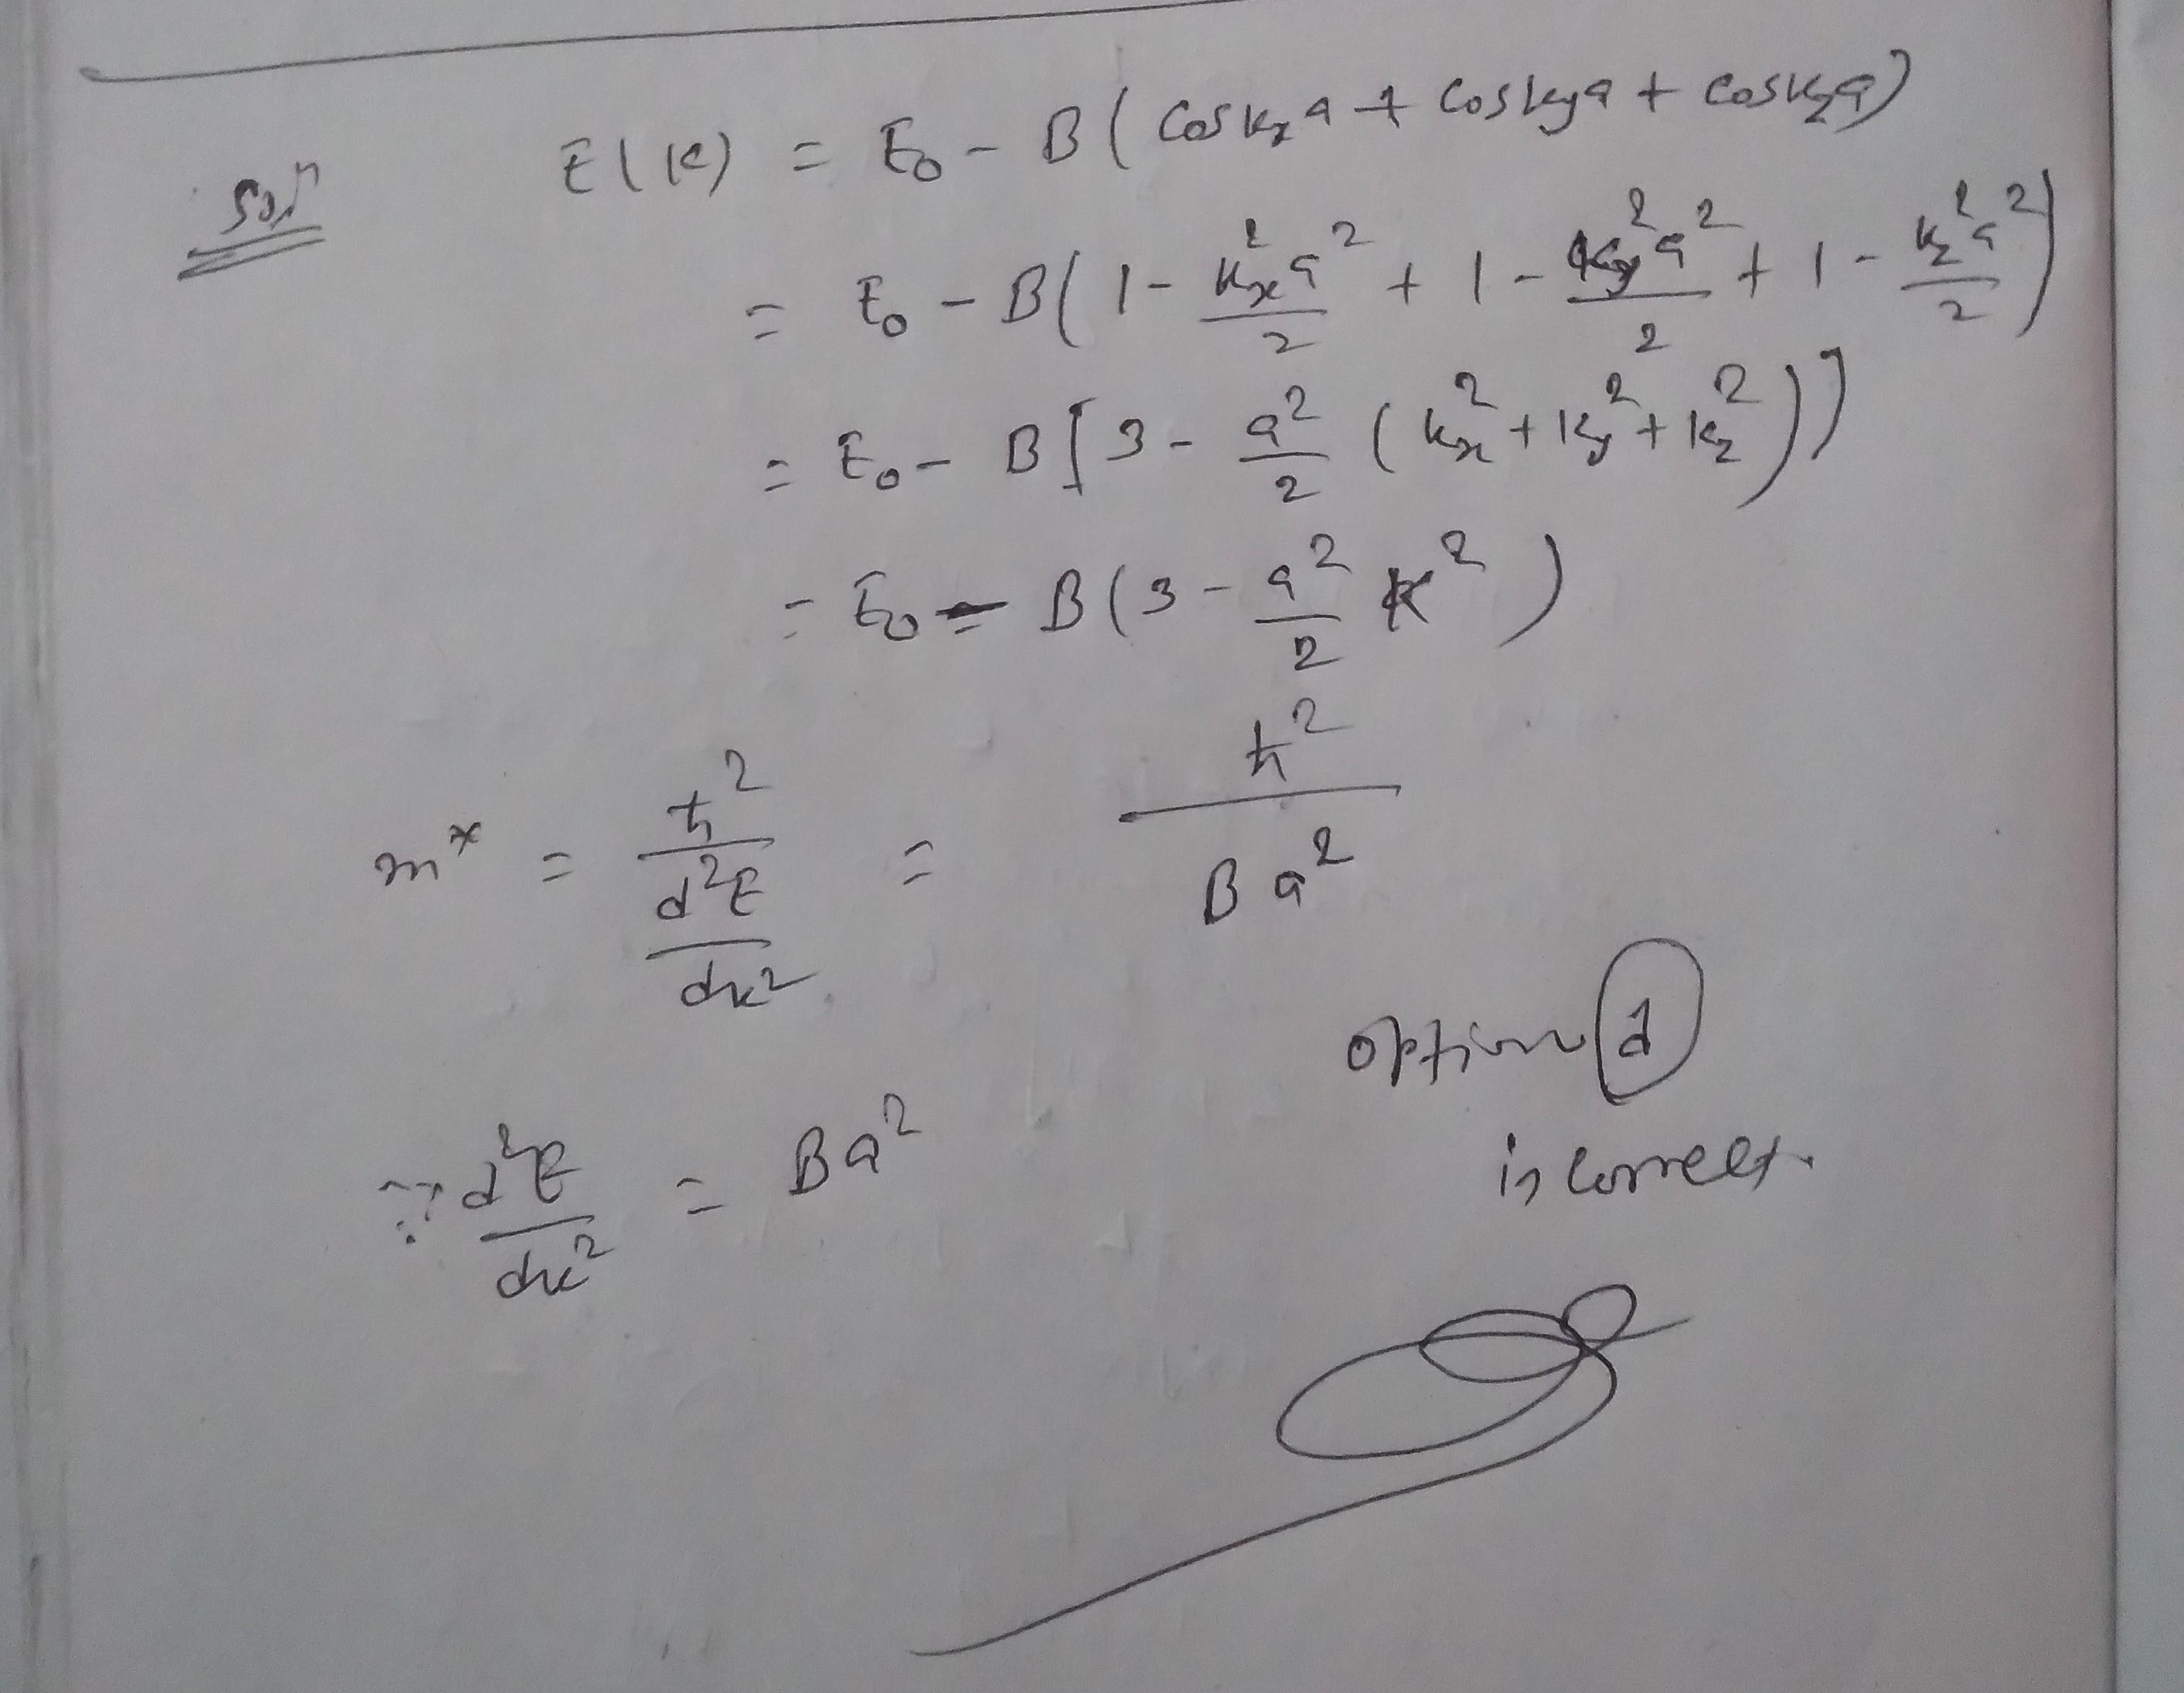 Solⁿ
E(k) = E₀ - B(Cos kₓa + Cos k_ya + Cos k_za)
= E₀ - B(1 - kₓ²a²/2 + 1 - k_y²a²/2 + 1 - k_z²a²/2)
= E₀ - B[3 - a²/2 (kₓ² + k_y² + k_z²)]
= E₀ - B(3 - a²/2 k²)
m* = ħ²/(d²E/dk²) = ħ²/(Ba²)
option (d)
is correct.
∵ d²E/dk² = Ba²